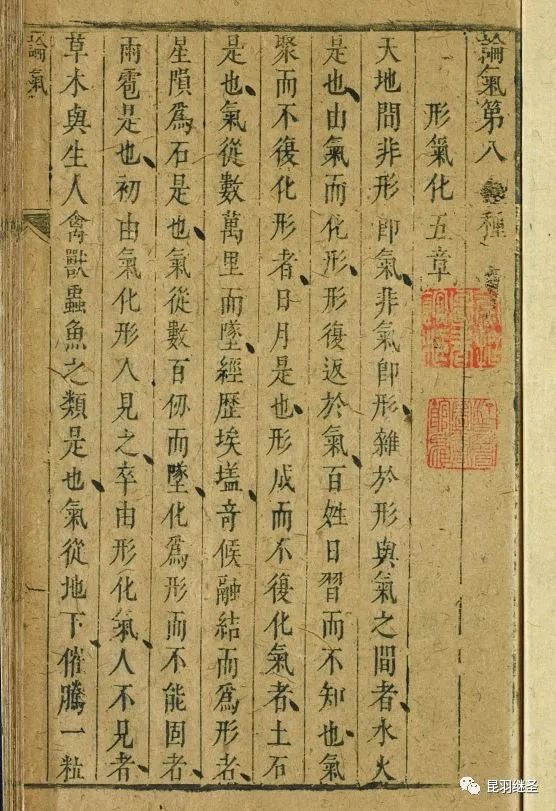 論氣第八
形氣化五章
天地間非形即氣非氣即形雜於形與氣之間者水火
是也由氣而化形形復返於氣百姓日習而不知也氣
聚而不復化形者日月是也形成而不復化氣者土石
是也氣從數萬里而墜經歷埃壒奇候融結而爲形者
星隕爲石是也氣從數百仞而墜化爲形而不能固者
雨雹是也初由氣化形人見之卒由形化氣人不見者
草木與生人禽獸蟲魚之類是也氣從地下催騰一粒
論氣
昆羽继圣